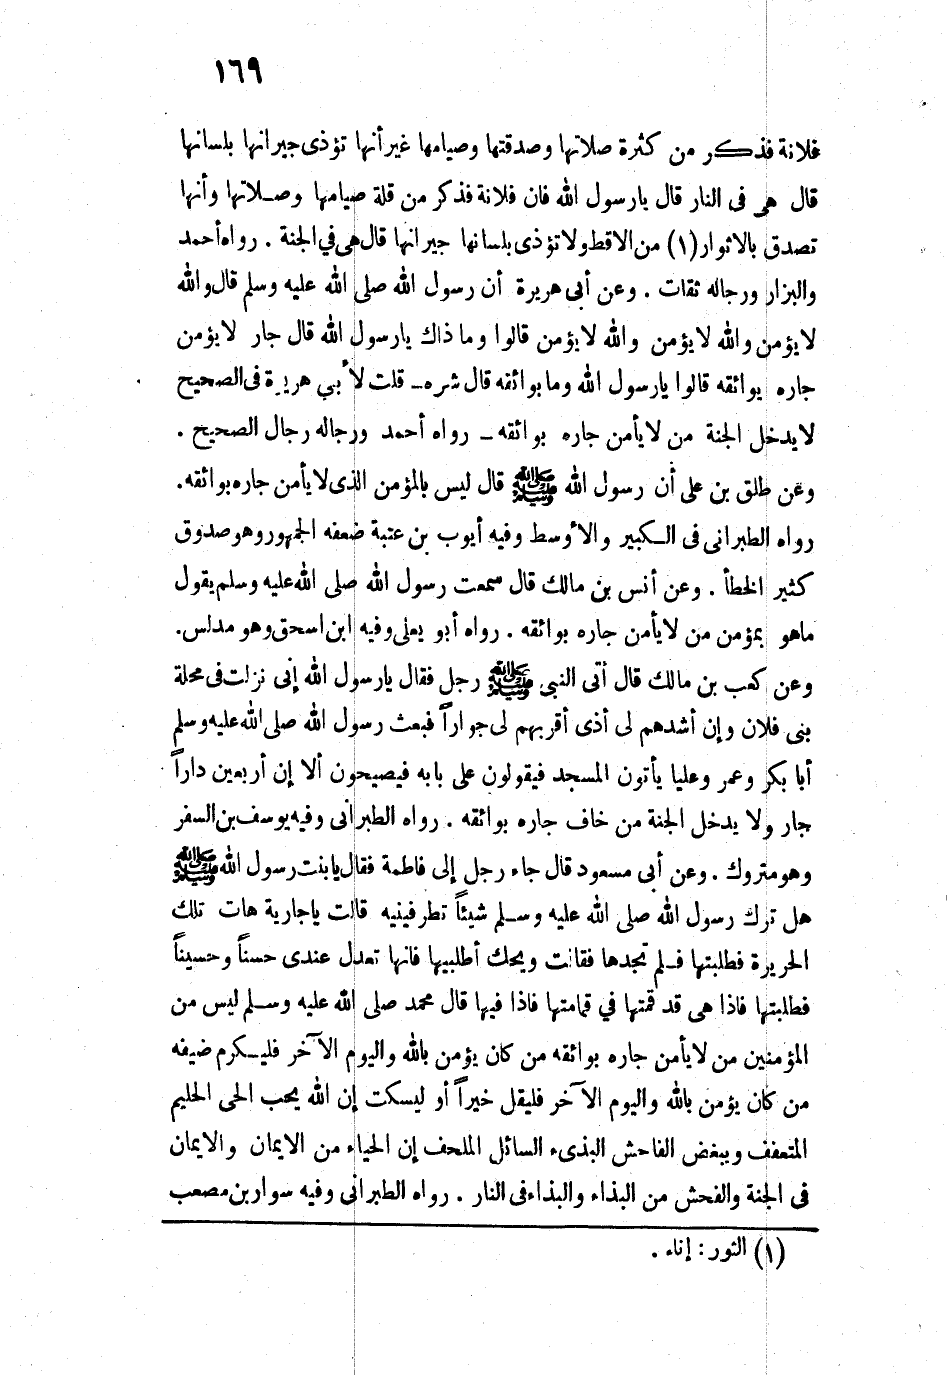 ١٦٩
فلانة فذكر من كثرة صلاتها وصدقتها وصيامها غير أنها تؤذى جيرانها بلسانها
قال هي فى النار قال يارسول الله فان فلانة فذكر من قلة صيامها وصلاتها وأنها
تصدق بالاثوار (١) من الاقط ولا تؤذى بلسانها جيرانها قال هي في الجنة . رواه أحمد
والبزار ورجاله ثقات . وعن أبى هريرة أن رسول الله صلى الله عليه وسلم قال والله
لا يؤمن والله لا يؤمن والله لا يؤمن قالوا وما ذاك يارسول الله قال جار لا يؤمن
جاره بوائقه قالوا يارسول الله وما بوائقه قال شره ـ قلت لأبي هريرة فى الصحيح
لا يدخل الجنة من لا يأمن جاره بوائقه ـ رواه أحمد ورجاله رجال الصحيح .
وعن طلق بن على أن رسول الله ﷺ قال ليس بالمؤمن الذى لا يأمن جاره بوائقه.
رواه الطبرانى فى الكبير والأوسط وفيه أيوب بن عتبة ضعفه الجمهور وهو صدوق
كثير الخطأ . وعن أنس بن مالك قال سمعت رسول الله صلى الله عليه وسلم يقول
ماهو بمؤمن من لا يأمن جاره بوائقه . رواه أبو يعلى وفيه ابن اسحق وهو مدلس.
وعن كعب بن مالك قال أتى النبى ﷺ رجل فقال يارسول الله إنى نزلت فى محلة
بنى فلان وإن أشدهم لى أذى أقربهم لى جواراً فبعث رسول الله صلى الله عليه وسلم
أبا بكر وعمر وعليا يأتون المسجد فيقولون على بابه فيصيحون ألا إن أربعين داراً
جار ولا يدخل الجنة من خاف جاره بوائقه . رواه الطبرانى وفيه يوسف بن السفر
وهو متروك . وعن أبى مسعود قال جاء رجل إلى فاطمة فقال يابنت رسول الله ﷺ
هل ترك رسول الله صلى الله عليه وسلم شيئاً تطرفينيه قالت ياجارية هات تلك
الحريرة فطلبتها فلم تجدها فقالت ويحك أطلبيها فانها تعدل عندى حسناً وحسيناً
فطلبتها فاذا هى قد قمتها في قمامتها فاذا فيها قال محمد صلى الله عليه وسلم ليس من
المؤمنين من لا يأمن جاره بوائقه من كان يؤمن بالله واليوم الآخر فليكرم ضيفه
من كان يؤمن بالله واليوم الآخر فليقل خيراً أو ليسكت إن الله يحب الحى الحليم
المتعفف ويبغض الفاحش البذىء السائل الملحف إن الحياء من الايمان والايمان
فى الجنة والفحش من البذاء والبذاء فى النار . رواه الطبرانى وفيه سوار بن مصعب
(١) الثور : إناء .